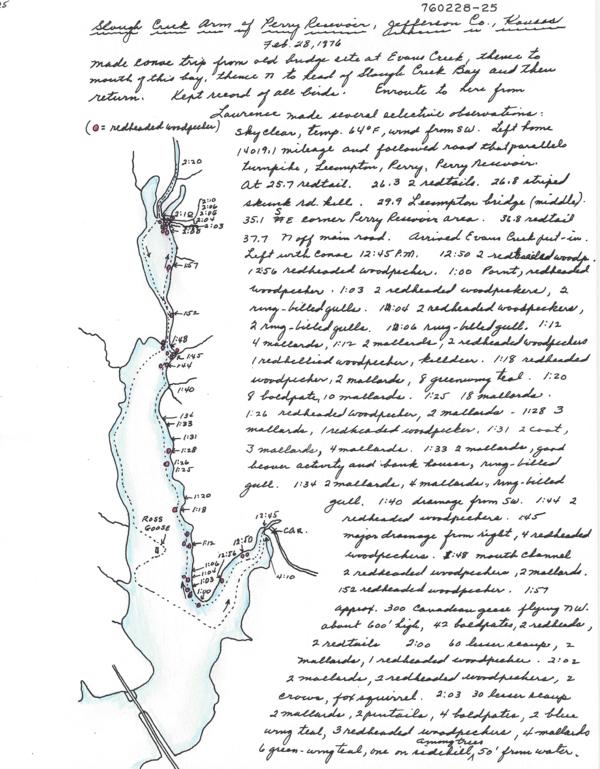 760228-25
Slough Creek Arm of Perry Resevoir, Jefferson Co., Kansas
Feb. 28, 1976
made canoe trip from old bridge site at Evans Creek, thence to
mouth of this bay, thence N to head of Slough Creek Bay and then
return. Kept record of all birds. Enroute to here from
Lawrence made several selective observations:
(= redheaded woodpecker)
Sky clear, temp. 64°F, wind from SW. Left home
14019.1 mileage and followed road that parallels
turnpike, Lecompton, Perry, Perry Resevoir.
At 25.7 redtail. 26.3 2 redtails. 26.8 striped
skunk rd. kill. 29.9 Lecompton bridge (middle).
35.1 SE corner Perry Resevoir area. 36.8 redtail
37.7 N off main road. Arrived Evans Creek put-in.
Left with canoe 12:45 P.M. 12:50 2 redheaded woodp.
12:56 redheaded woodpecker. 1:00 Point, redheaded
woodpecker. 1:03 2 redheaded woodpeckers, 2
ring-billed gulls. 1:04 2 redheaded woodpeckers,
2 ring-billed gulls. 1:06 ring-billed gull. 1:12
4 mallards, 1:12 2 mallards, 2 redheaded woodpeckers
1 redbellied woodpecker, killdeer. 1:18 redheaded
woodpecker, 2 mallards, 8 greenwing teal. 1:20
8 baldpate, 10 mallards. 1:25 18 mallards.
1:26 redheaded woodpecker, 2 mallards - 1:28 3
mallards, 1 redheaded woodpecker. 1:31 2 coot,
3 mallards, 4 mallards. 1:33 2 mallards, good
beaver activity and bank houses, ring-billed
gull. 1:34 2 mallards, 4 mallards, ring-billed
gull. 1:40 drainage from SW. 1:44 2
redheaded woodpeckers. 1:45
major drainage from right, 4 redheaded
woodpeckers. 1:48 mouth channel
2 redheaded woodpeckers, 2 mallards.
1:52 redheaded woodpecker. 1:57
approx. 300 Canadian geese flying NW.
about 600' high, 42 baldpates, 2 redheads,
2 redtails 2:00 60 lesser scaup, 2
mallards, 1 redheaded woodpecker. 2:02
2 mallards, 2 redheaded woodpeckers, 2
crows, fox squirrel. 2:03 30 lesser scaup
2 mallards, 2 pintails, 4 baldpates, 2 blue
wing teal, 3 redheaded woodpeckers, 4 mallards
6 green-wing teal, one on sidehill, among trees 50' from water.
2:20
2:10
2:06
2:05
2:04
2:03
2:10
1:57
1:52
1:48
1:45
1:44
1:40
1:33
1:31
1:28
1:26
1:25
1:20
1:18
ROSS
GOOSE
1:12
12:45
CAR
12:50
12:56
1:06
1:04
1:03
1:00
4:10